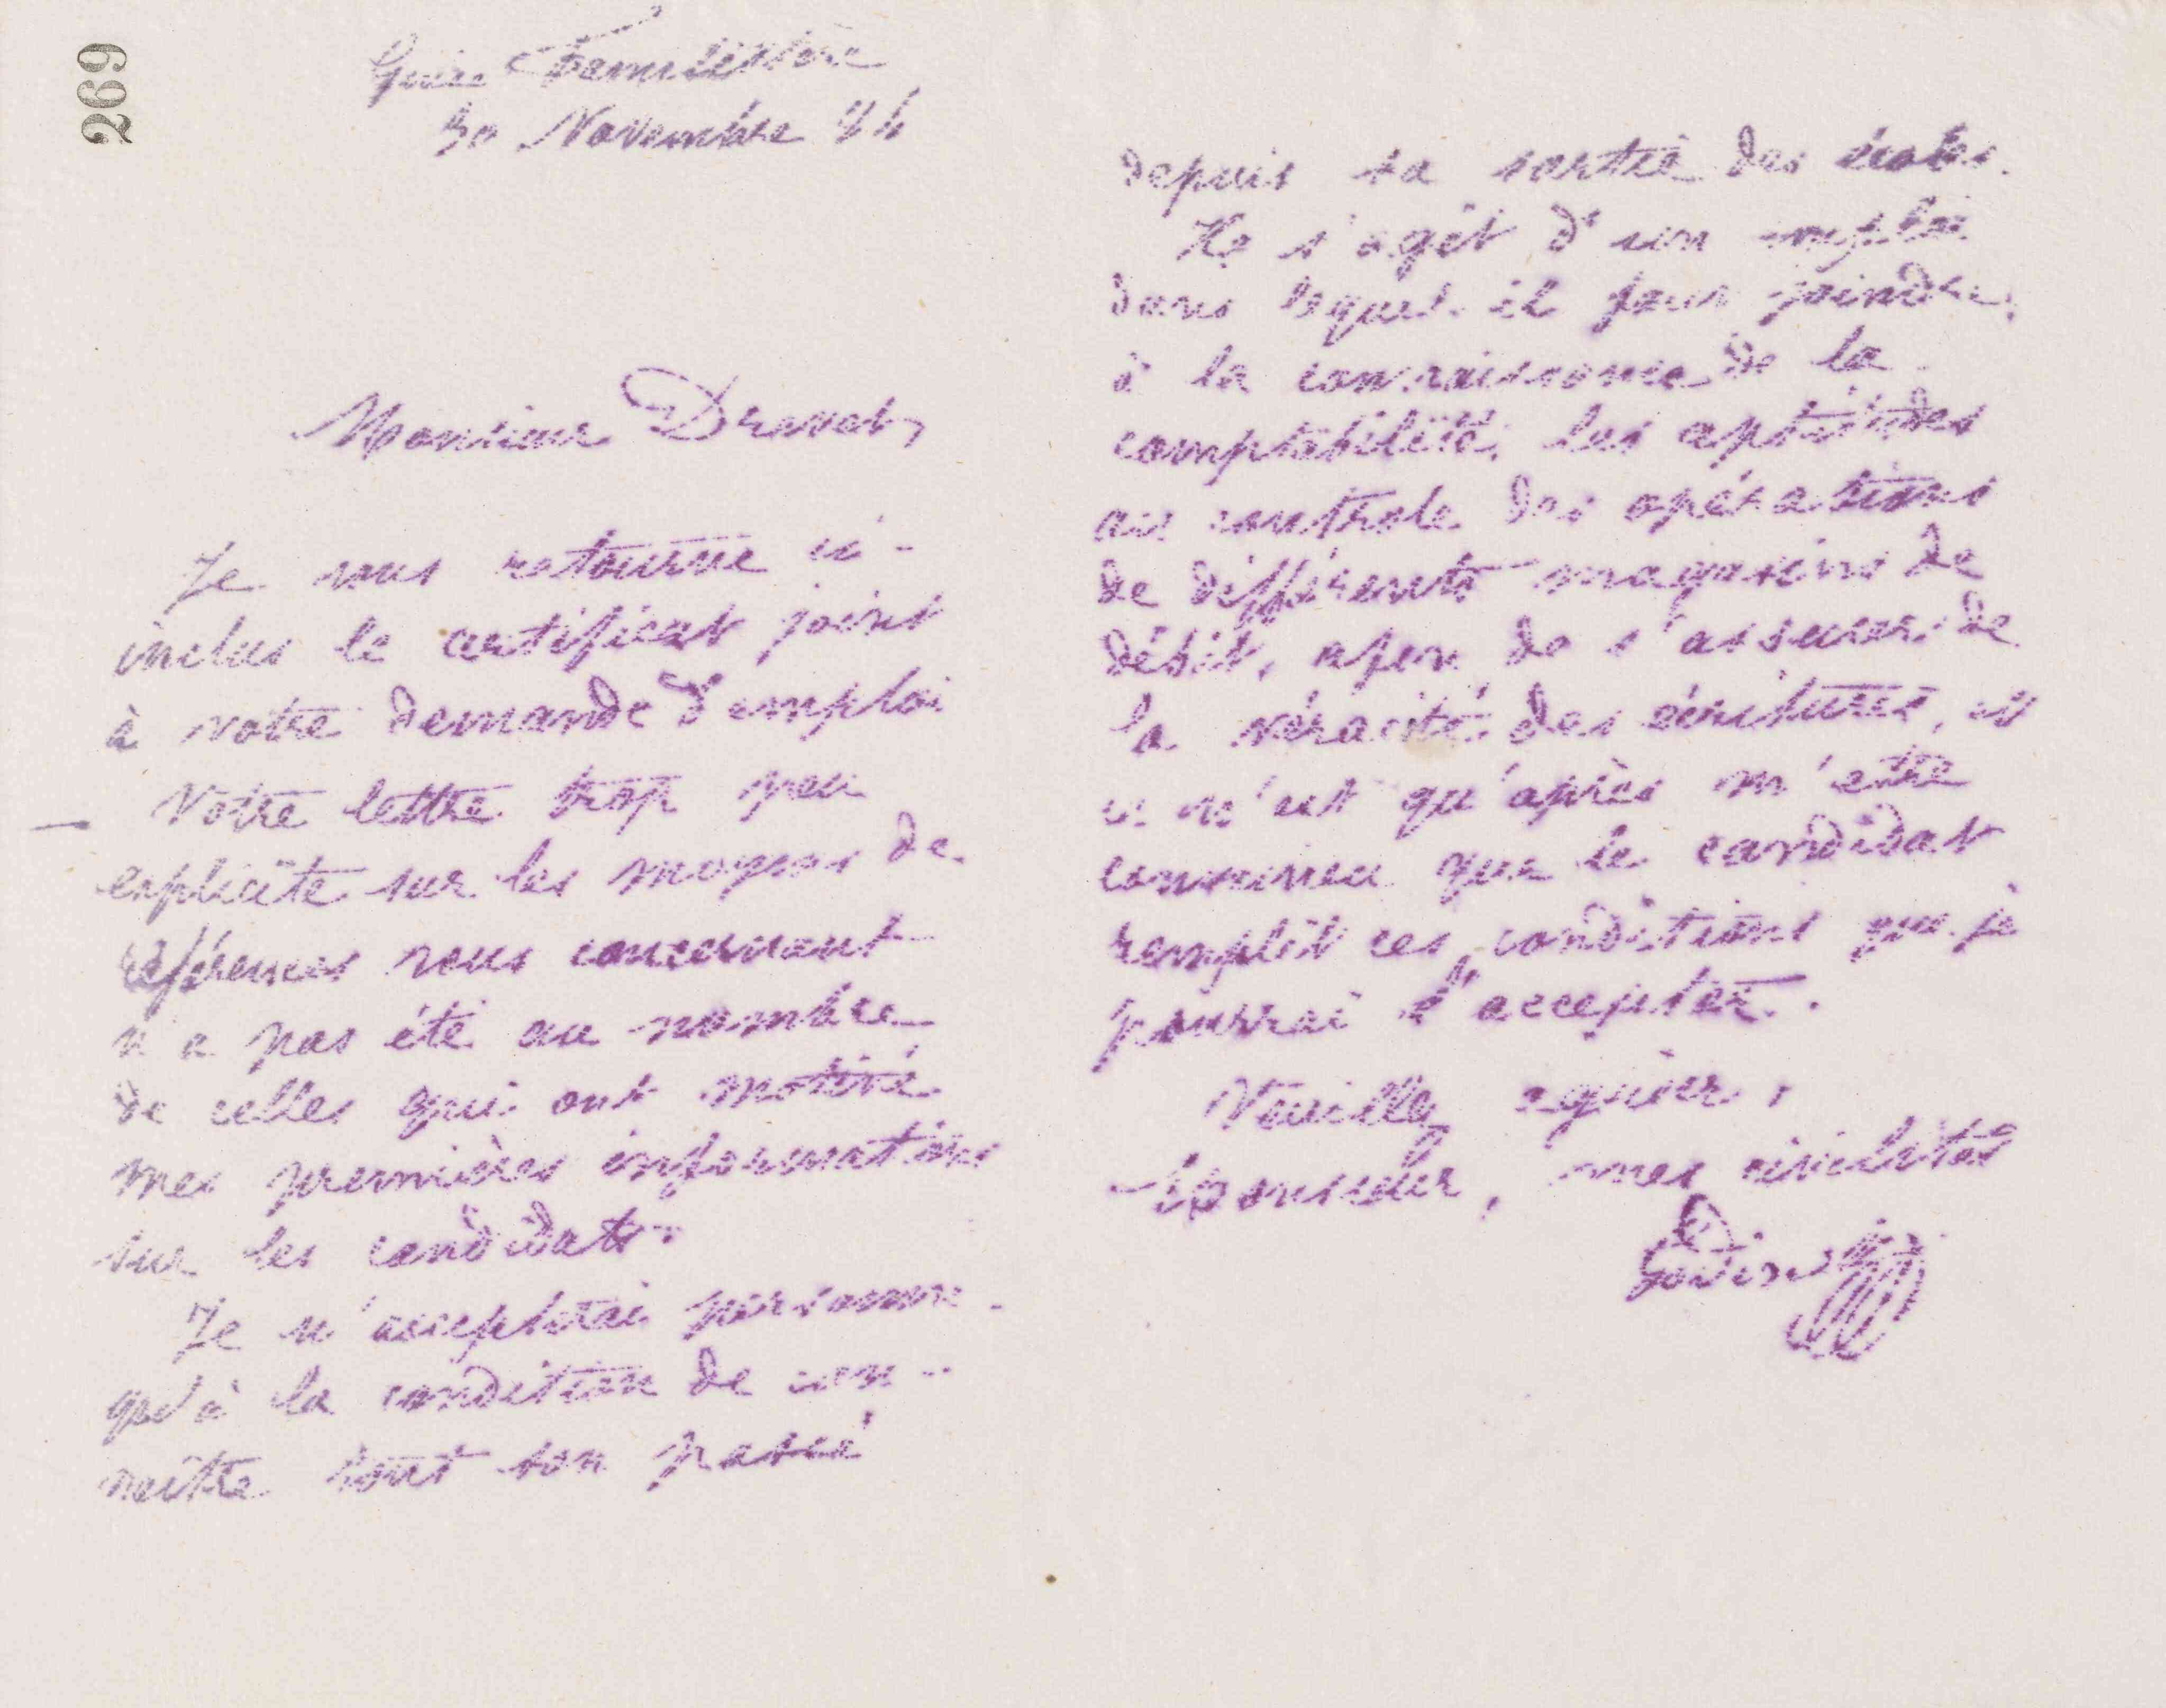 269
Guise Familistère
30 Novembre
Monsieur Dravet,
Je vous retourne ci-
inclus le certificat joint
à votre demande d'emploi
Votre lettre trop peu
explicite sur les moyens de
références vous concernant
n'a pas été au nombre
de celles qui ont motivé
mes premières informations
sur les candidats.
Je n'accepterai personne
qu'à la condition de con-
naître tout son passé
depuis sa sortie des écoles.
Il s'agit d'un emploi
dans lequel il faut joindre,
à la connaissance de la
comptabilité, les aptitudes
au controle des opérations
de différents magasins de
débit, afin de s'assurer de
la véracité des écritures, et
ce n'est qu'après m'être
convaincu que le candidat
remplit ces conditions que je
pourrai l'accepter.
Veuillez agréer,
Monsieur, mes civilités
Godin